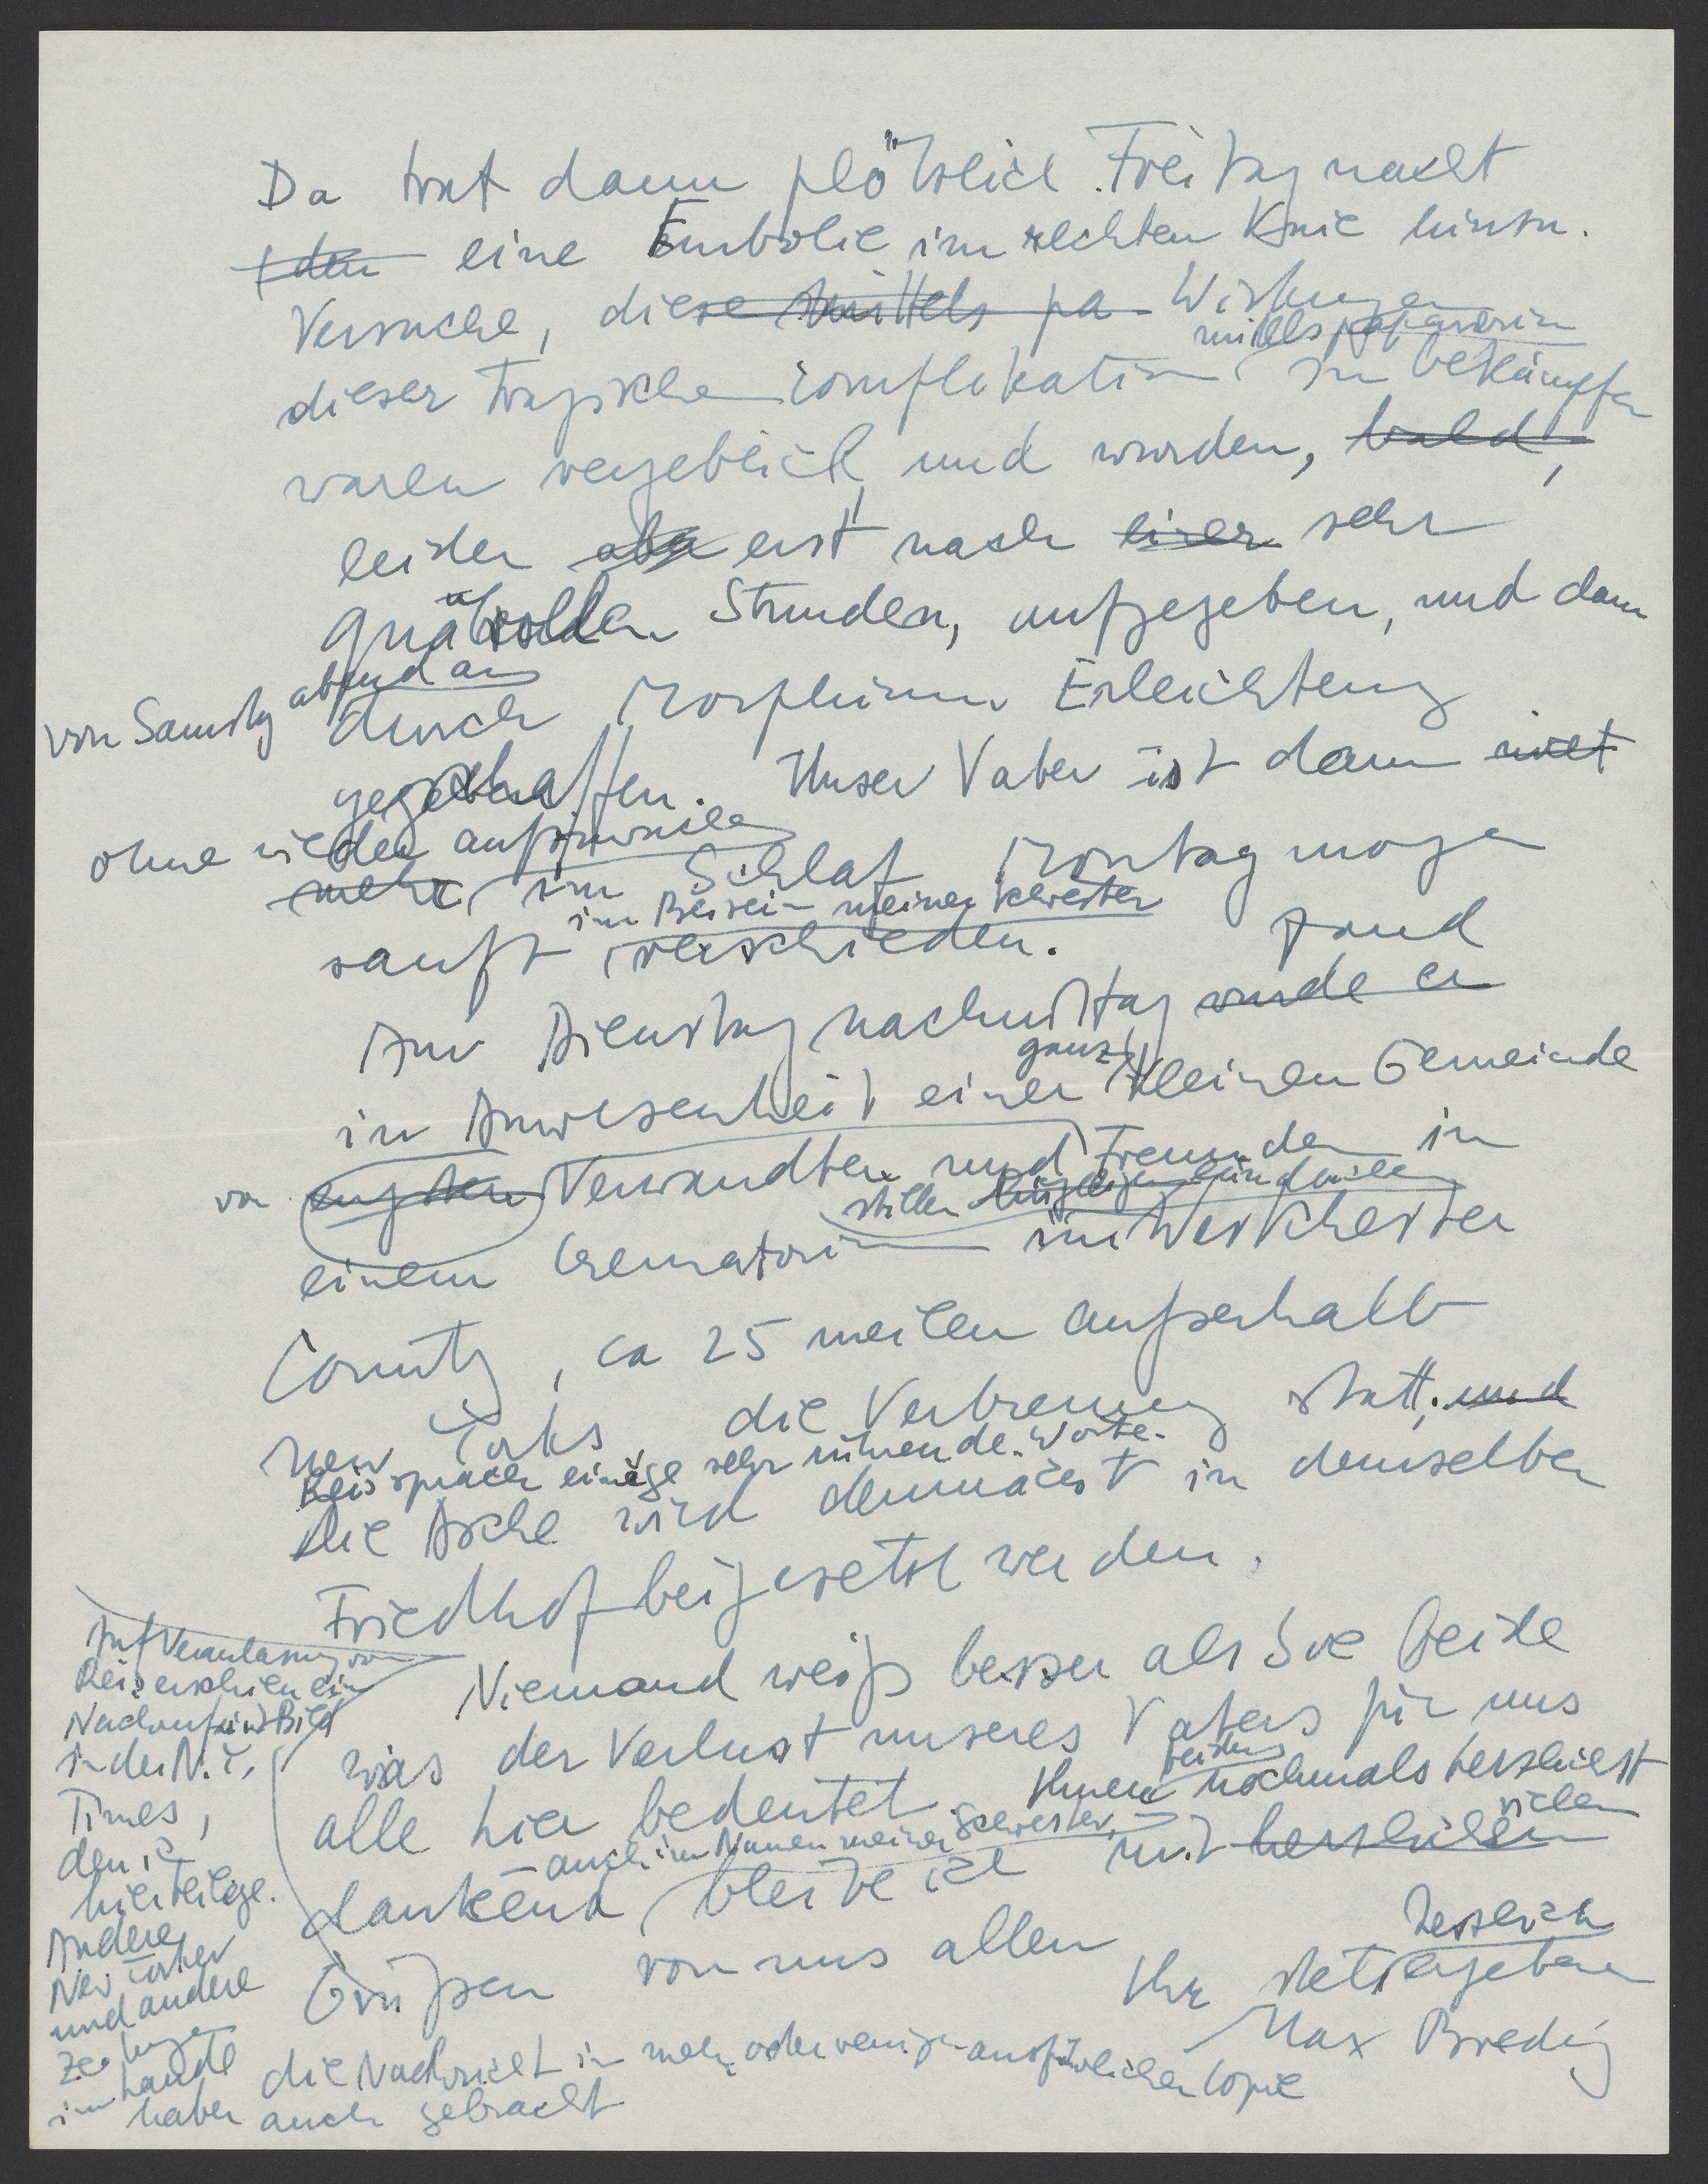 Da trat dann plötzlich Freitag nacht
eine Embolie im rechten Knie hinzu.
Versuche, diese mittels pa Wirkungen
mittels papaverin
dieser tragischen Complikation zu bekämpfen
waren vergeblich und wurden, bald,
leider aber erst nach einer sehr
qualvollen Stunden, aufgegeben, und dann
von Samstag abend an
durch Morphium Erleichterung
geschaffen. Unser Vater ist dann nicht
ohne wieder aufzuwachen
mehr im Schlaf Montag morgen
im Beisein meiner Schwester
sanft verschieden. fand
Am Dienstag nachmittag wurde er
ganz
in Anwesenheit einer kleinen Gemeinde
von engsten Verwandten und Freunden in
stiller
einem Crematorium im Westchester
County, ca 25 meilen außerhalb
New Yorks die Verbrennung statt. und
Reis sprach einige sehr rührende Worte.
Die Asche wird demnächst in demselben
Friedhof beigesetzt werden.
Niemand weiß besser als Sie beide
was der Verlust unseres Vaters für uns
alle hier bedeutet. Ihnen beiden nochmals herzlichst
auch im Namen meiner Schwester,
dankend, bleibe ich mit herzlichen vielen
Grüßen von uns allen
Ihr stets herzlich ergebener
Max Bredig
Auf Veranlassung von
Reis erschien ein
Nachruf mit Bild
in der N.Y.
Times,
den ich
hier beilege.
Andere
New Yorker
und andere
Zeitungen
im Lande
haben auch gebracht
die Nachricht in mehr oder weniger ausführlicher Copie